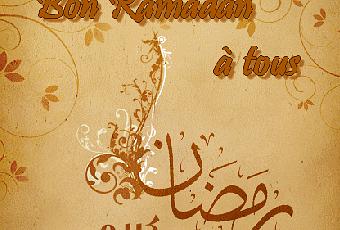 Bon Ramadan
à tous
رمضان